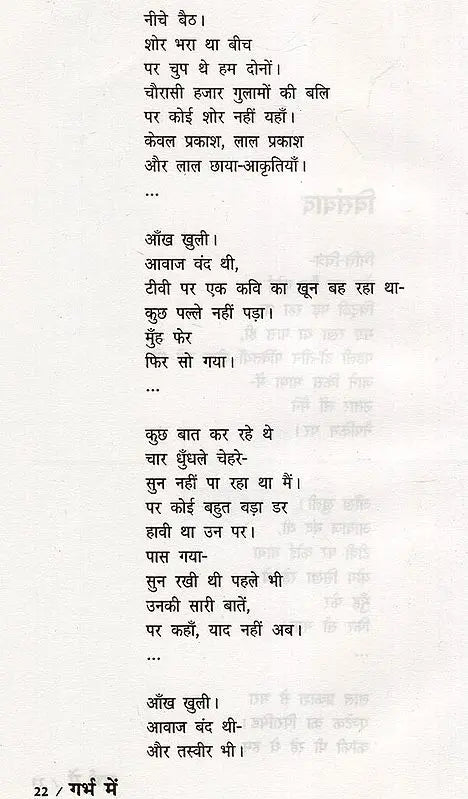 नीचे बैठ।
शोर भरा था बीच
पर चुप थे हम दोनों।
चौरासी हजार गुलामों की बलि
पर कोई शोर नहीं यहाँ।
केवल प्रकाश, लाल प्रकाश
और लाल छाया-आकृतियाँ।
...
आँख खुली।
आवाज वंद थी,
टीवी पर एक कवि का खून बह रहा था-
कुछ पल्ले नहीं पड़ा।
मुँह फेर
फिर सो गया।
...
कुछ बात कर रहे थे
चार धुँधले चेहरे-
सुन नहीं पा रहा था मैं।
पर कोई बहुत वड़ा डर
हावी था उन पर।
पास गया-
सुन रखी थी पहले भी
उनकी सारी बातें,
पर कहाँ, याद नहीं अब।
...
आँख खुली।
आवाज बंद थी-
और तस्वीर भी।
22 / गर्भ में